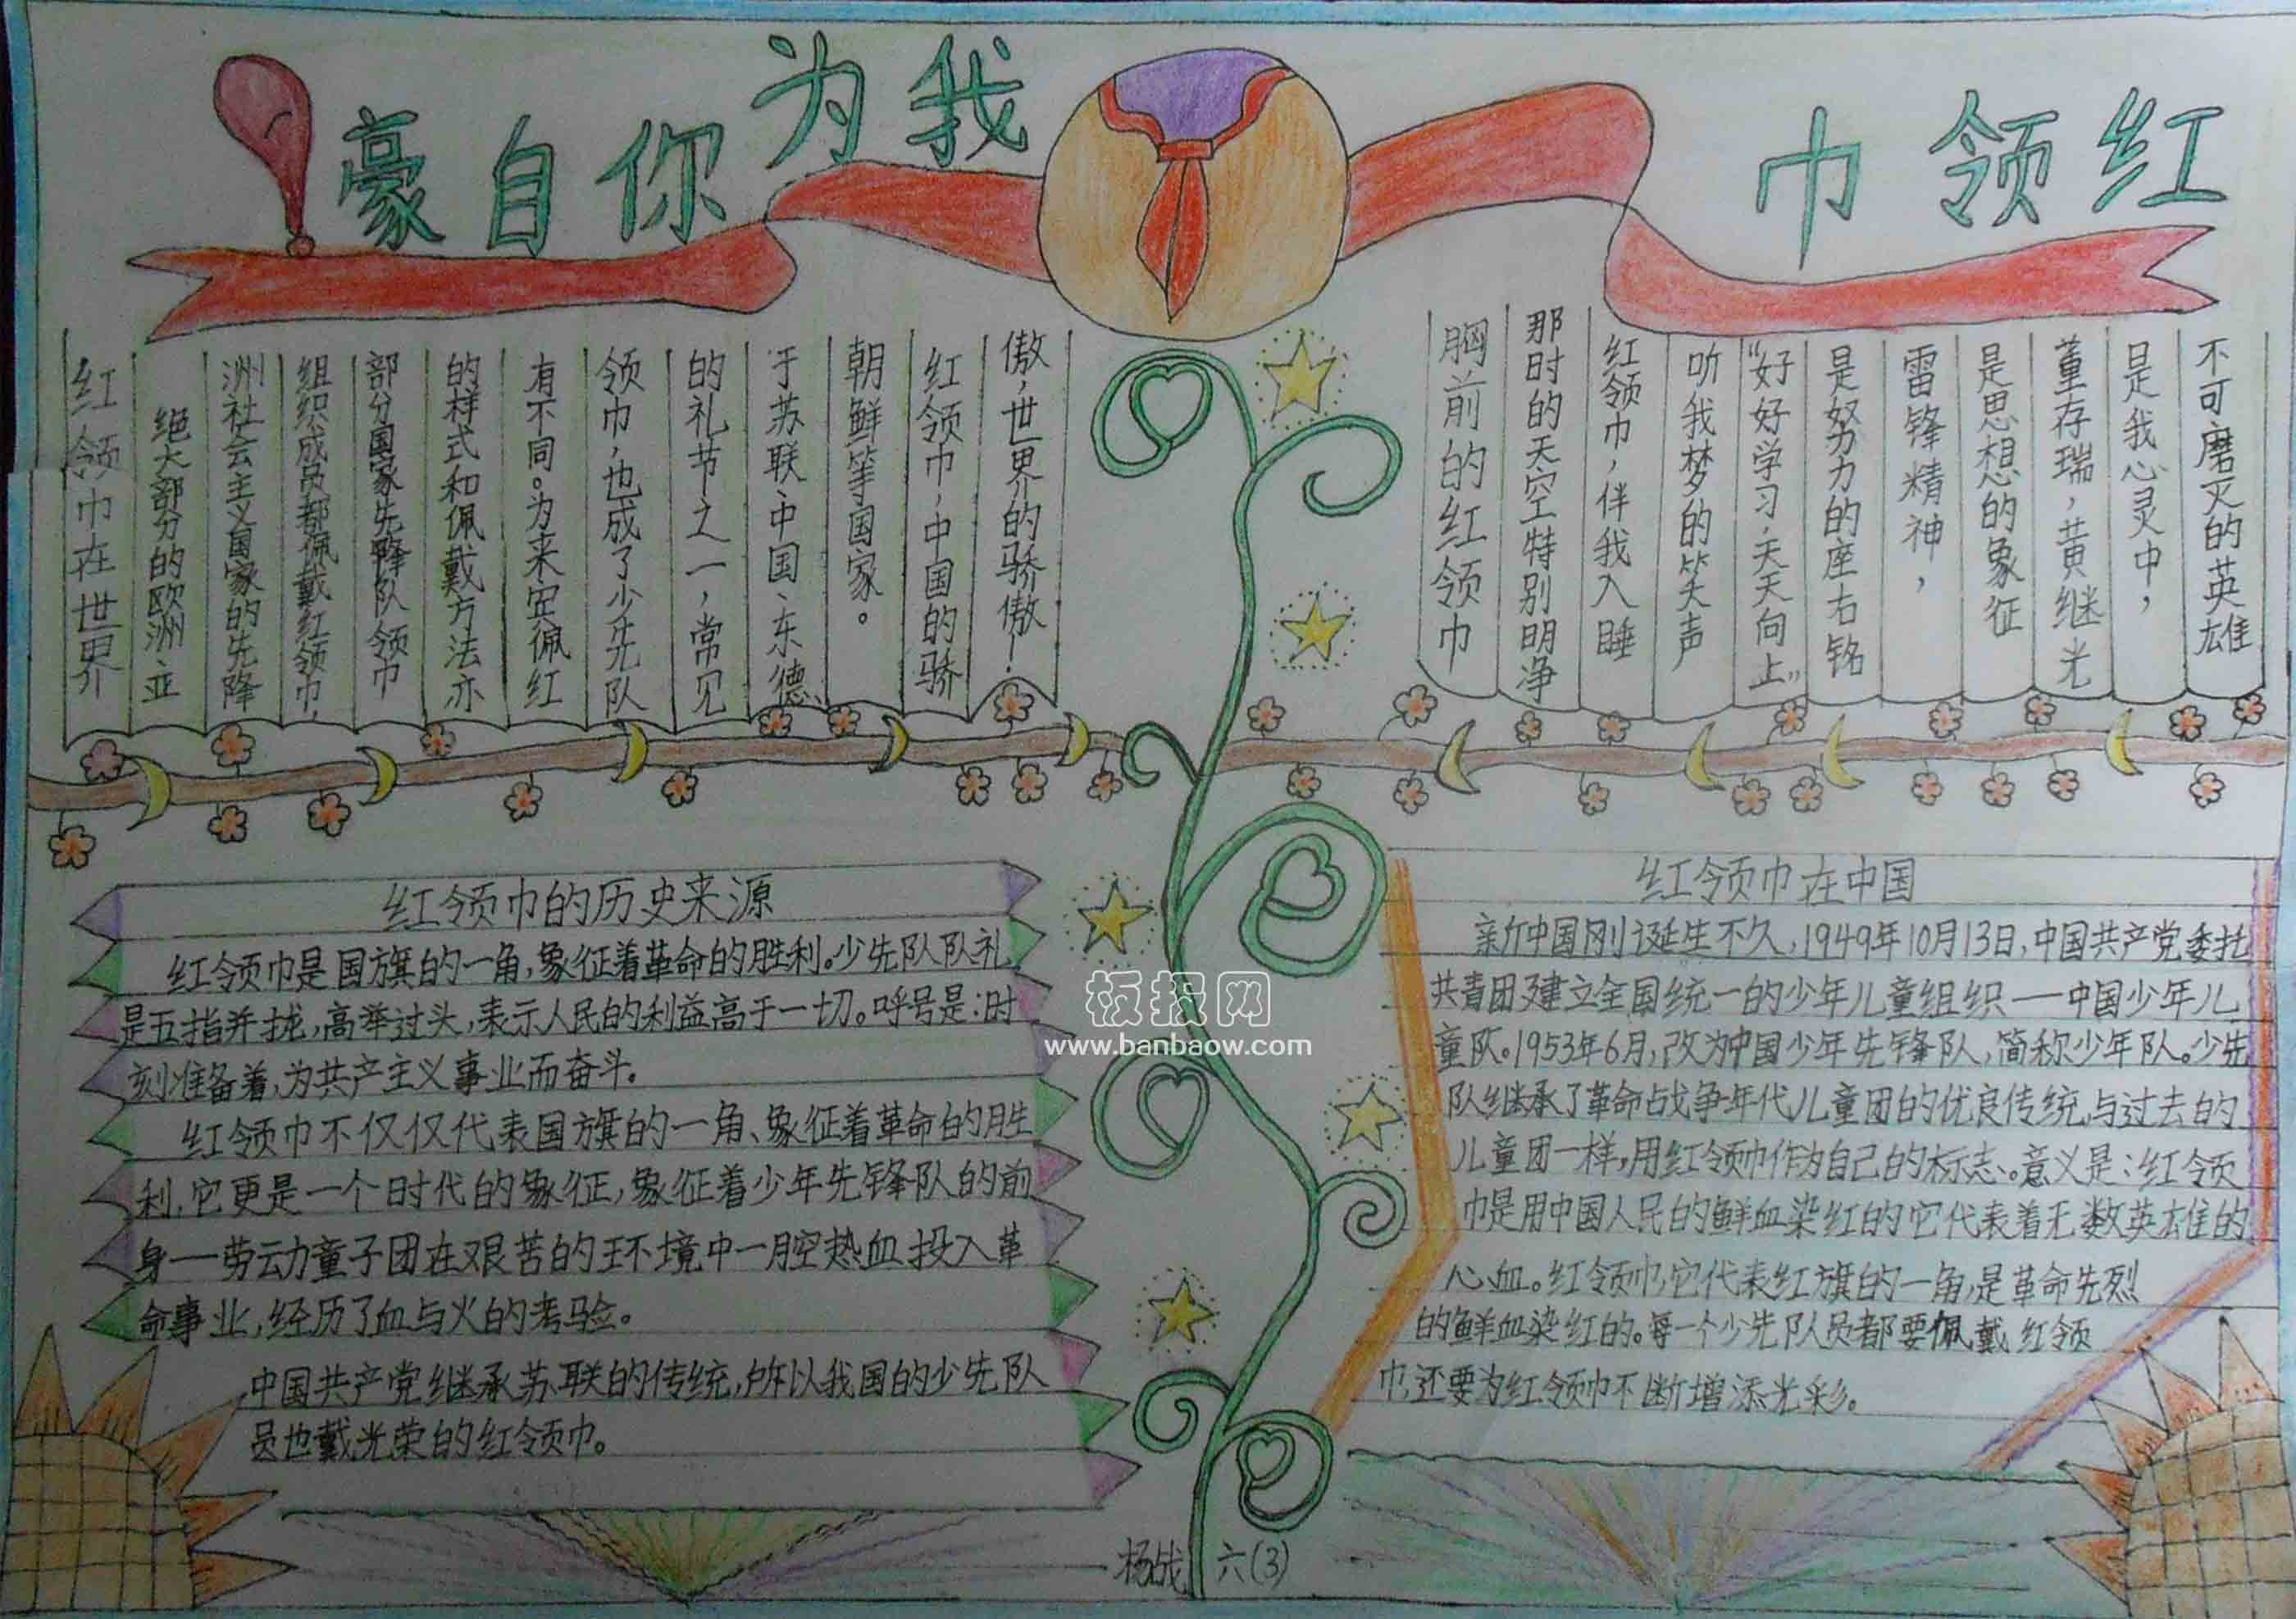 红领巾 我为你自豪!
红领巾在世界
绝大部分的欧洲亚
洲社会主义国家的先降
组织成员都佩戴红领巾,
部分国家先降队领巾
的样式和佩戴方法亦
有不同。为来宾佩红
领巾,也成了少先队
的礼节之一,常见
于苏联、中国、东德、
朝鲜等国家。
红领巾,中国的骄
傲,世界的骄傲!
胸前的红领巾
那时的天空特别明净
红领巾,伴我入睡
听我梦的笑声
“好好学习,天天向上”
是努力的座右铭
雷锋精神,
是思想的象征
董存瑞,黄继光
是我心灵中,
不可磨灭的英雄
红领巾的历史来源
红领巾是国旗的一角,象征着革命的胜利。少先队队礼
是五指并拢,高举过头,表示人民的利益高于一切。呼号是:时
刻准备着,为共产主义事业而奋斗。
红领巾不仅仅代表国旗的一角、象征着革命的胜
利,它更是一个时代的象征,象征着少年先锋队的前
身一劳动童子团在艰苦的环境中一腔热血投入革
命事业,经历了血与火的考验。
中国共产党继承苏联的传统,所以我国的少先队
员也戴光荣的红领巾。
红领巾在中国
新中国刚诞生不久,1949年10月13日,中国共产党委托
共青团建立全国统一的少年儿童组织一中国少年儿
童队。1953年6月,改为中国少年先锋队,简称少年队。少先
队继承了革命战争年代儿童团的优良传统,与过去的
儿童团一样,用红领巾作为自己的标志。意义是:红领
巾是用中国人民的鲜血染红的它代表着无数英雄的
心血。红领巾,它代表红旗的一角,是革命先烈
的鲜血染红的。每一个少先队员都要佩戴红领
巾,还要为红领巾不断增添光彩。
板报网
www.banbaow.com
杨战 六(3)